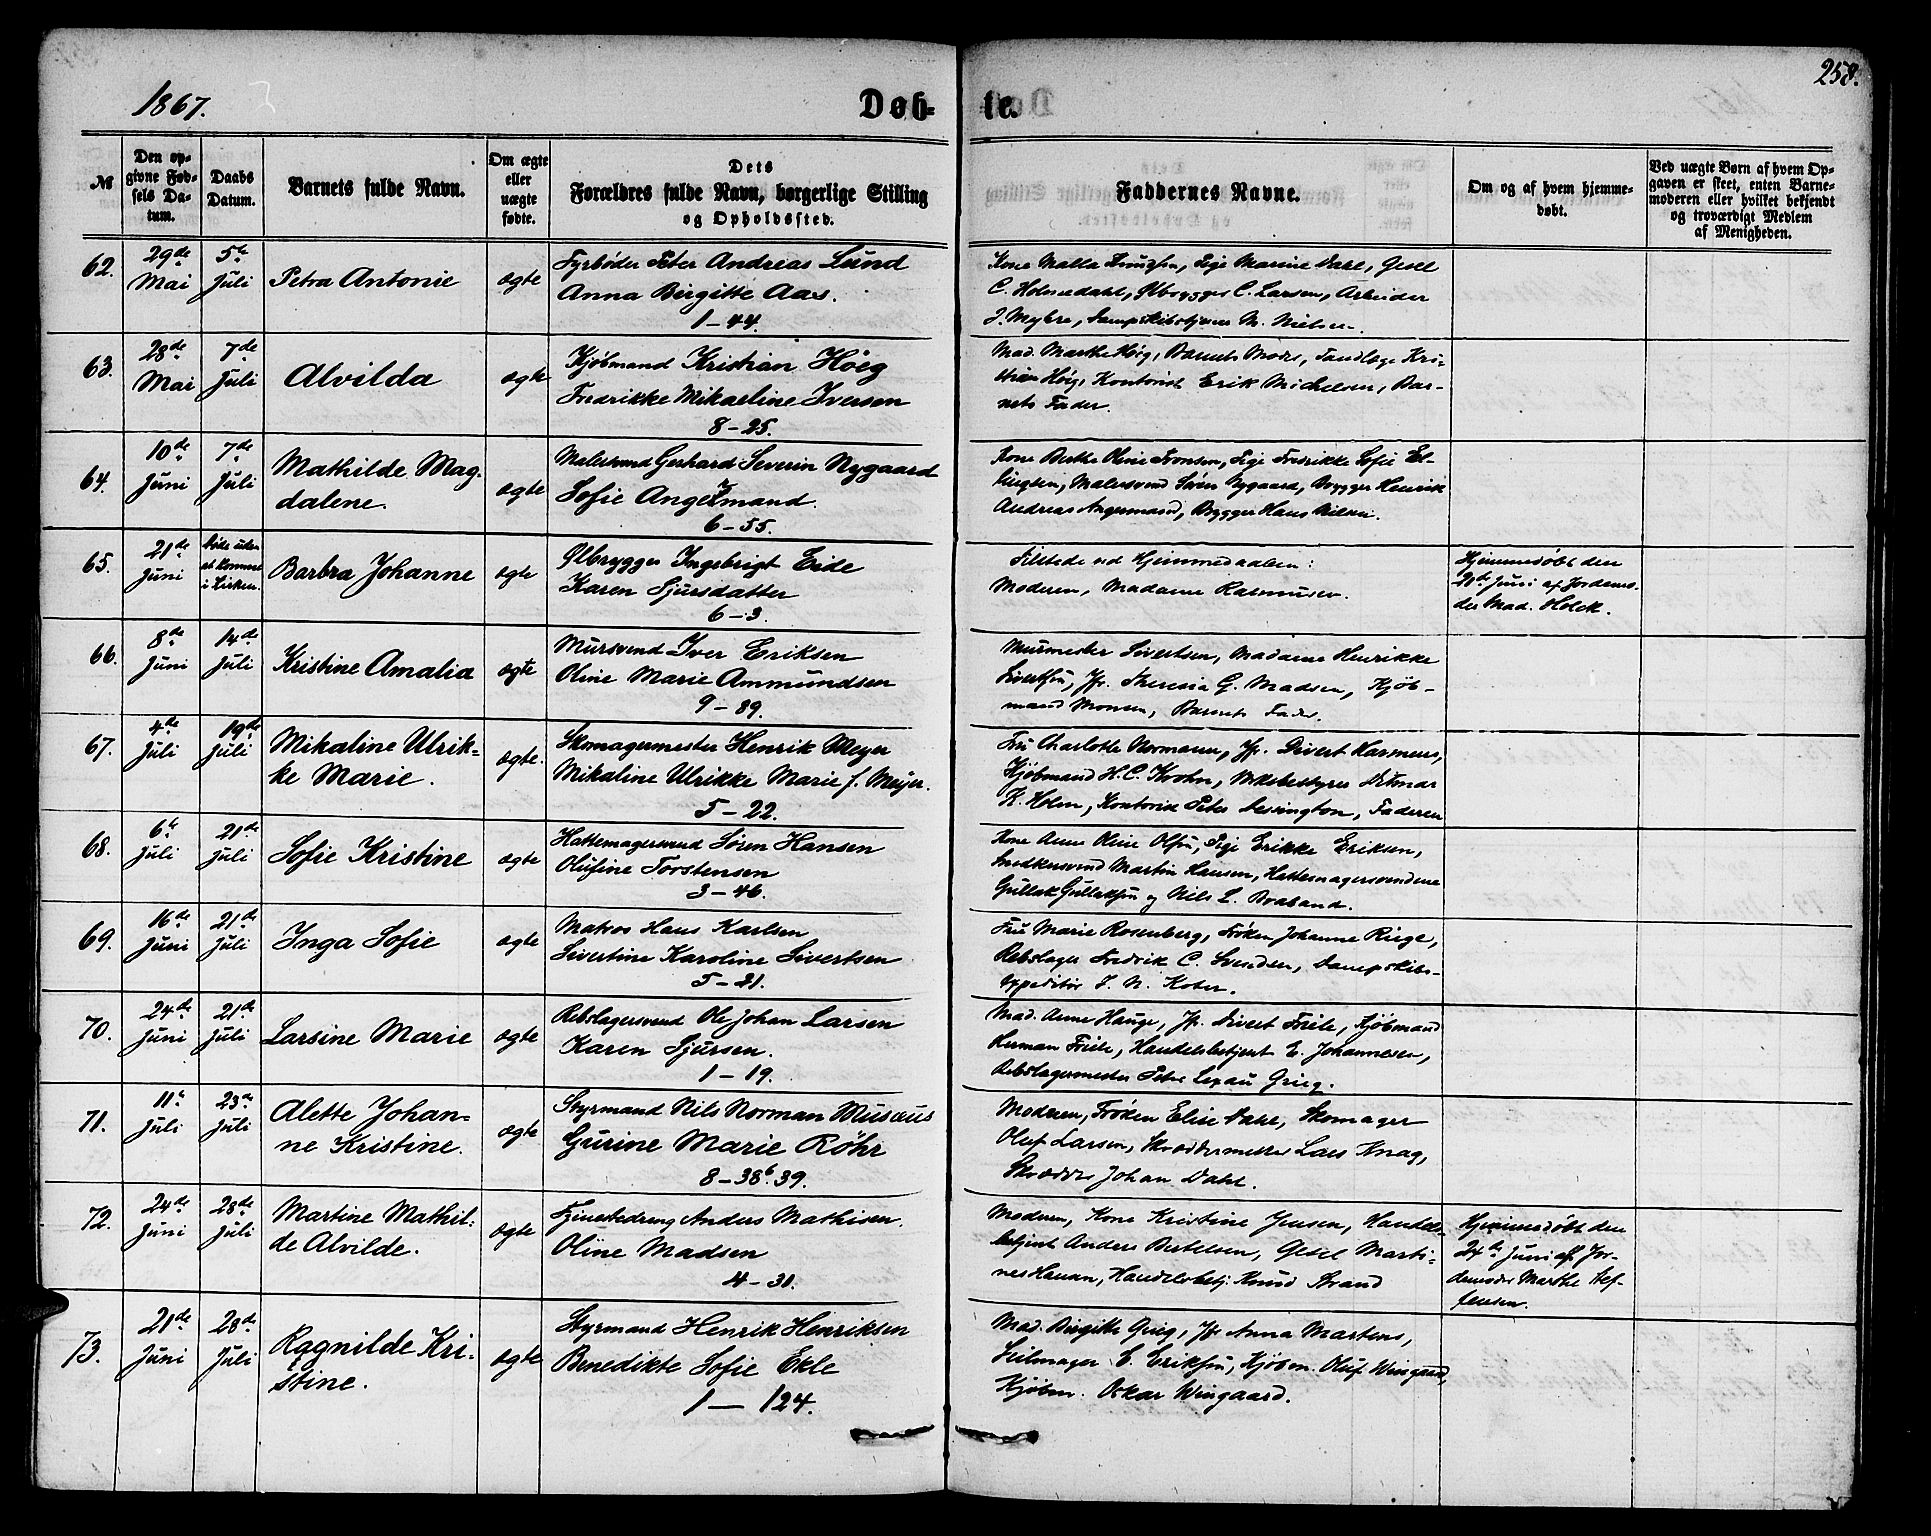 1867.
Døb-
te.
258.
№
Den op-
givne Fød-
sels Da-
tum.
Daabs
Datum.
Barnets fulde Navn.
Om ægte
eller
uægte
fødte.
Dets
Forældres fulde Navn, borgerlige Stilling
og Opholdssted.
Faddernes Navne.
Om og af hvem hjemme-
døbt.
Ved uægte Børn af hvem Op-
gaven er skeet, enten Barne-
moderen eller hvilket bekjendt
og troværdigt Medlem
af Menigheden.
62.
29de
Mai
5te
Juli
Petra Antonie
ægte
Fyrbøder Peter Andreas Lund
Anna Birgitte Aas.
1-44.
Kone Malla Knudsen, Pige Marine Dahl, Gesel
C. Holmedahl, Ølbrygger C. Larsen, Arbeider
J. Myhre, Dampskibstjener M. Nielsen.
63.
28de
Mai
7de
Juli
Alvilda
ægte
Kjøbmand Kristian Høeg
Fredrikke Mikaeline Iversen
8-25.
Mad. Marthe Høig, Barnets Moder, Tandlæge Kri-
stian Høig, Kontorist Erik Michelsen, Bar-
nets Fader.
64.
10de
Juni
7de
Juli
Mathilde Mag-
dalene.
ægte
Malersvend Gerhard Severin Nygaard
Sofie Angermand.
6-55.
Kone Berthe Oline Fronsen, Pige Fredrikke Sofie El-
lingsen, Malersvend Søren Nygaard, Brygger Henrik
Andreas Angermand, Brygger Hans Nilsen.
65.
21de
Juni
Døde uden
at komme
i Kirken.
Barbra Johanne
ægte
Ølbrygger Ingebrigt Eide
Karen Sjursdatter
6-3.
Tilstede ved Hjemmedaaben:
Moderen, Madame Rasmusen.
Hjemmedøbt den
21de Juni af Jordemo-
der Mad. Holck.
66.
8de
Juni
14de
Juli
Kristine Amalia
ægte
Mursvend Iver Eriksen
Oline Marie Ammundsen
9-89.
Murmester Sivertsen, Madame Henrikke
Sivertsen, Jfr. Theresia G. Madsen, Kjøb-
mand Monsen, Barnets Fader.
67.
4de
Juli
19de
Juli
Mikaline Ulrik-
ke Marie.
ægte.
Skomagermester Henrik Meyer
Mikaline Ulrikke Marie f. Meyer.
5-22.
Fru Charlotte Normann, Jfr. Divert Harmens,
Kjøbmand H. C. Krohn, Ditmar
K. Holm, Kontorist Peter Dessington, Faderen
68.
6te
Juli
21de
Juli
Sofie Kristine
ægte
Hattemagersvend Søren Hansen
Olufine Torstensen
3-46.
Kone Anne Oline Olsen, Pige Erikke Eriksen,
Snedkersvend Martin Hansen, Hattemagersvendene
Gullak Gullaksen og Nils L. Braband.
69.
16de
Juni
21de
Juli
Inga Sofie
ægte
Matros Hans Karlsen
Sivertine Karoline Sivertsen
5-21.
Fru Marie Rosenberg, Frøken Johanne Riege,
Rebslager Fredrik C. Svendsen, Dampskibs-
expeditør J. N. Koter.
70.
24de
Juni
21de
Juli
Larsine Marie
ægte
Rebslagersvend Ole Johan Larsen
Karen Sjursen.
1-19.
Mad. Anne Hauge, Jfr. Divert Friele, Kjøbmand
Herman Friele, Handelsbetjent E. Johannesen,
Rebslagermester Peter Lexau Grieg.
71.
11te
Juli
23de
Juli
Alette Johan-
ne Kristine.
ægte
Styrmand Nils Norman Musæus
Gurine Marie Röhr
8-38b.39.
Moderen, Frøken Elise Dahl, Skomager
Oluf Larsen, Skræddermester Lars Knag,
Skrædder Johan Dahl.
72.
24de
Juni
28de
Juli
Martine Mathil-
de Alvilde.
ægte
Tjenestedreng Anders Mathisen.
Oline Madsen
4-31.
Moderen, Kone Kristine Jensen, Handels-
betjent Anders Bertelsen, Gesel Marti-
nes Hansen, Handelsbetj. Knud Strand
Hjemmedøbt den
24de Juni af Jor-
demoder Marthe Stef-
fensen.
73.
21de
Juni
28de
Juli
Ragnilde Kri-
stine.
ægte
Styrmand Henrik Henriksen
Benedikte Sofie Ekle
1 — 124.
Mad. Birgitte Grieg, Jfr. Anna Martens,
Seilmager E. Eriksen, Kjøbm. Oluf Wingaard,
Kjøbm. Oskar Wingaard.